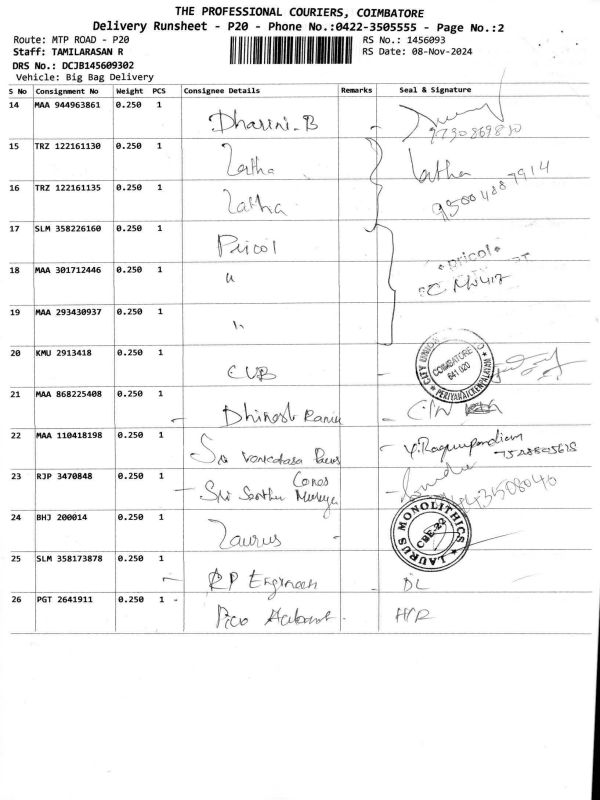 THE PROFESSIONAL COURIERS, COIMBATORE
Delivery Runsheet - P20 - Phone No.:0422-3505555 - Page No.:2
Route: MTP ROAD - P20
RS No.: 1456093
Staff: TAMILARASAN R
RS Date: 08-Nov-2024
DRS No.: DCJB145609302
Vehicle: Big Bag Delivery
S No Consignment No Weight PCS Consignee Details Remarks Seal & Signature
14 MAA 944963861 0.250 1 Dharini.B
15 TRZ 122161130 0.250 1 Latha Latha
16 TRZ 122161135 0.250 1 Latha 95004887914
17 SLM 358226160 0.250 1 Pricol pricol
18 MAA 301712446 0.250 1 "
19 MAA 293430937 0.250 1 "
20 KMU 2913418 0.250 1 CUB CITY UNION COIMBATORE 641 020 PERIYANAICKENPALAYAM
21 MAA 868225408 0.250 1 Dhinesh
22 MAA 110418198 0.250 1 Sri
23 RJP 3470848 0.250 1 Sri
24 BHJ 200014 0.250 1 Laurus LAURUS MONOLITHICS CBE-22
25 SLM 358173878 0.250 1 RP Engineers DL
26 PGT 2641911 0.250 1 H/R